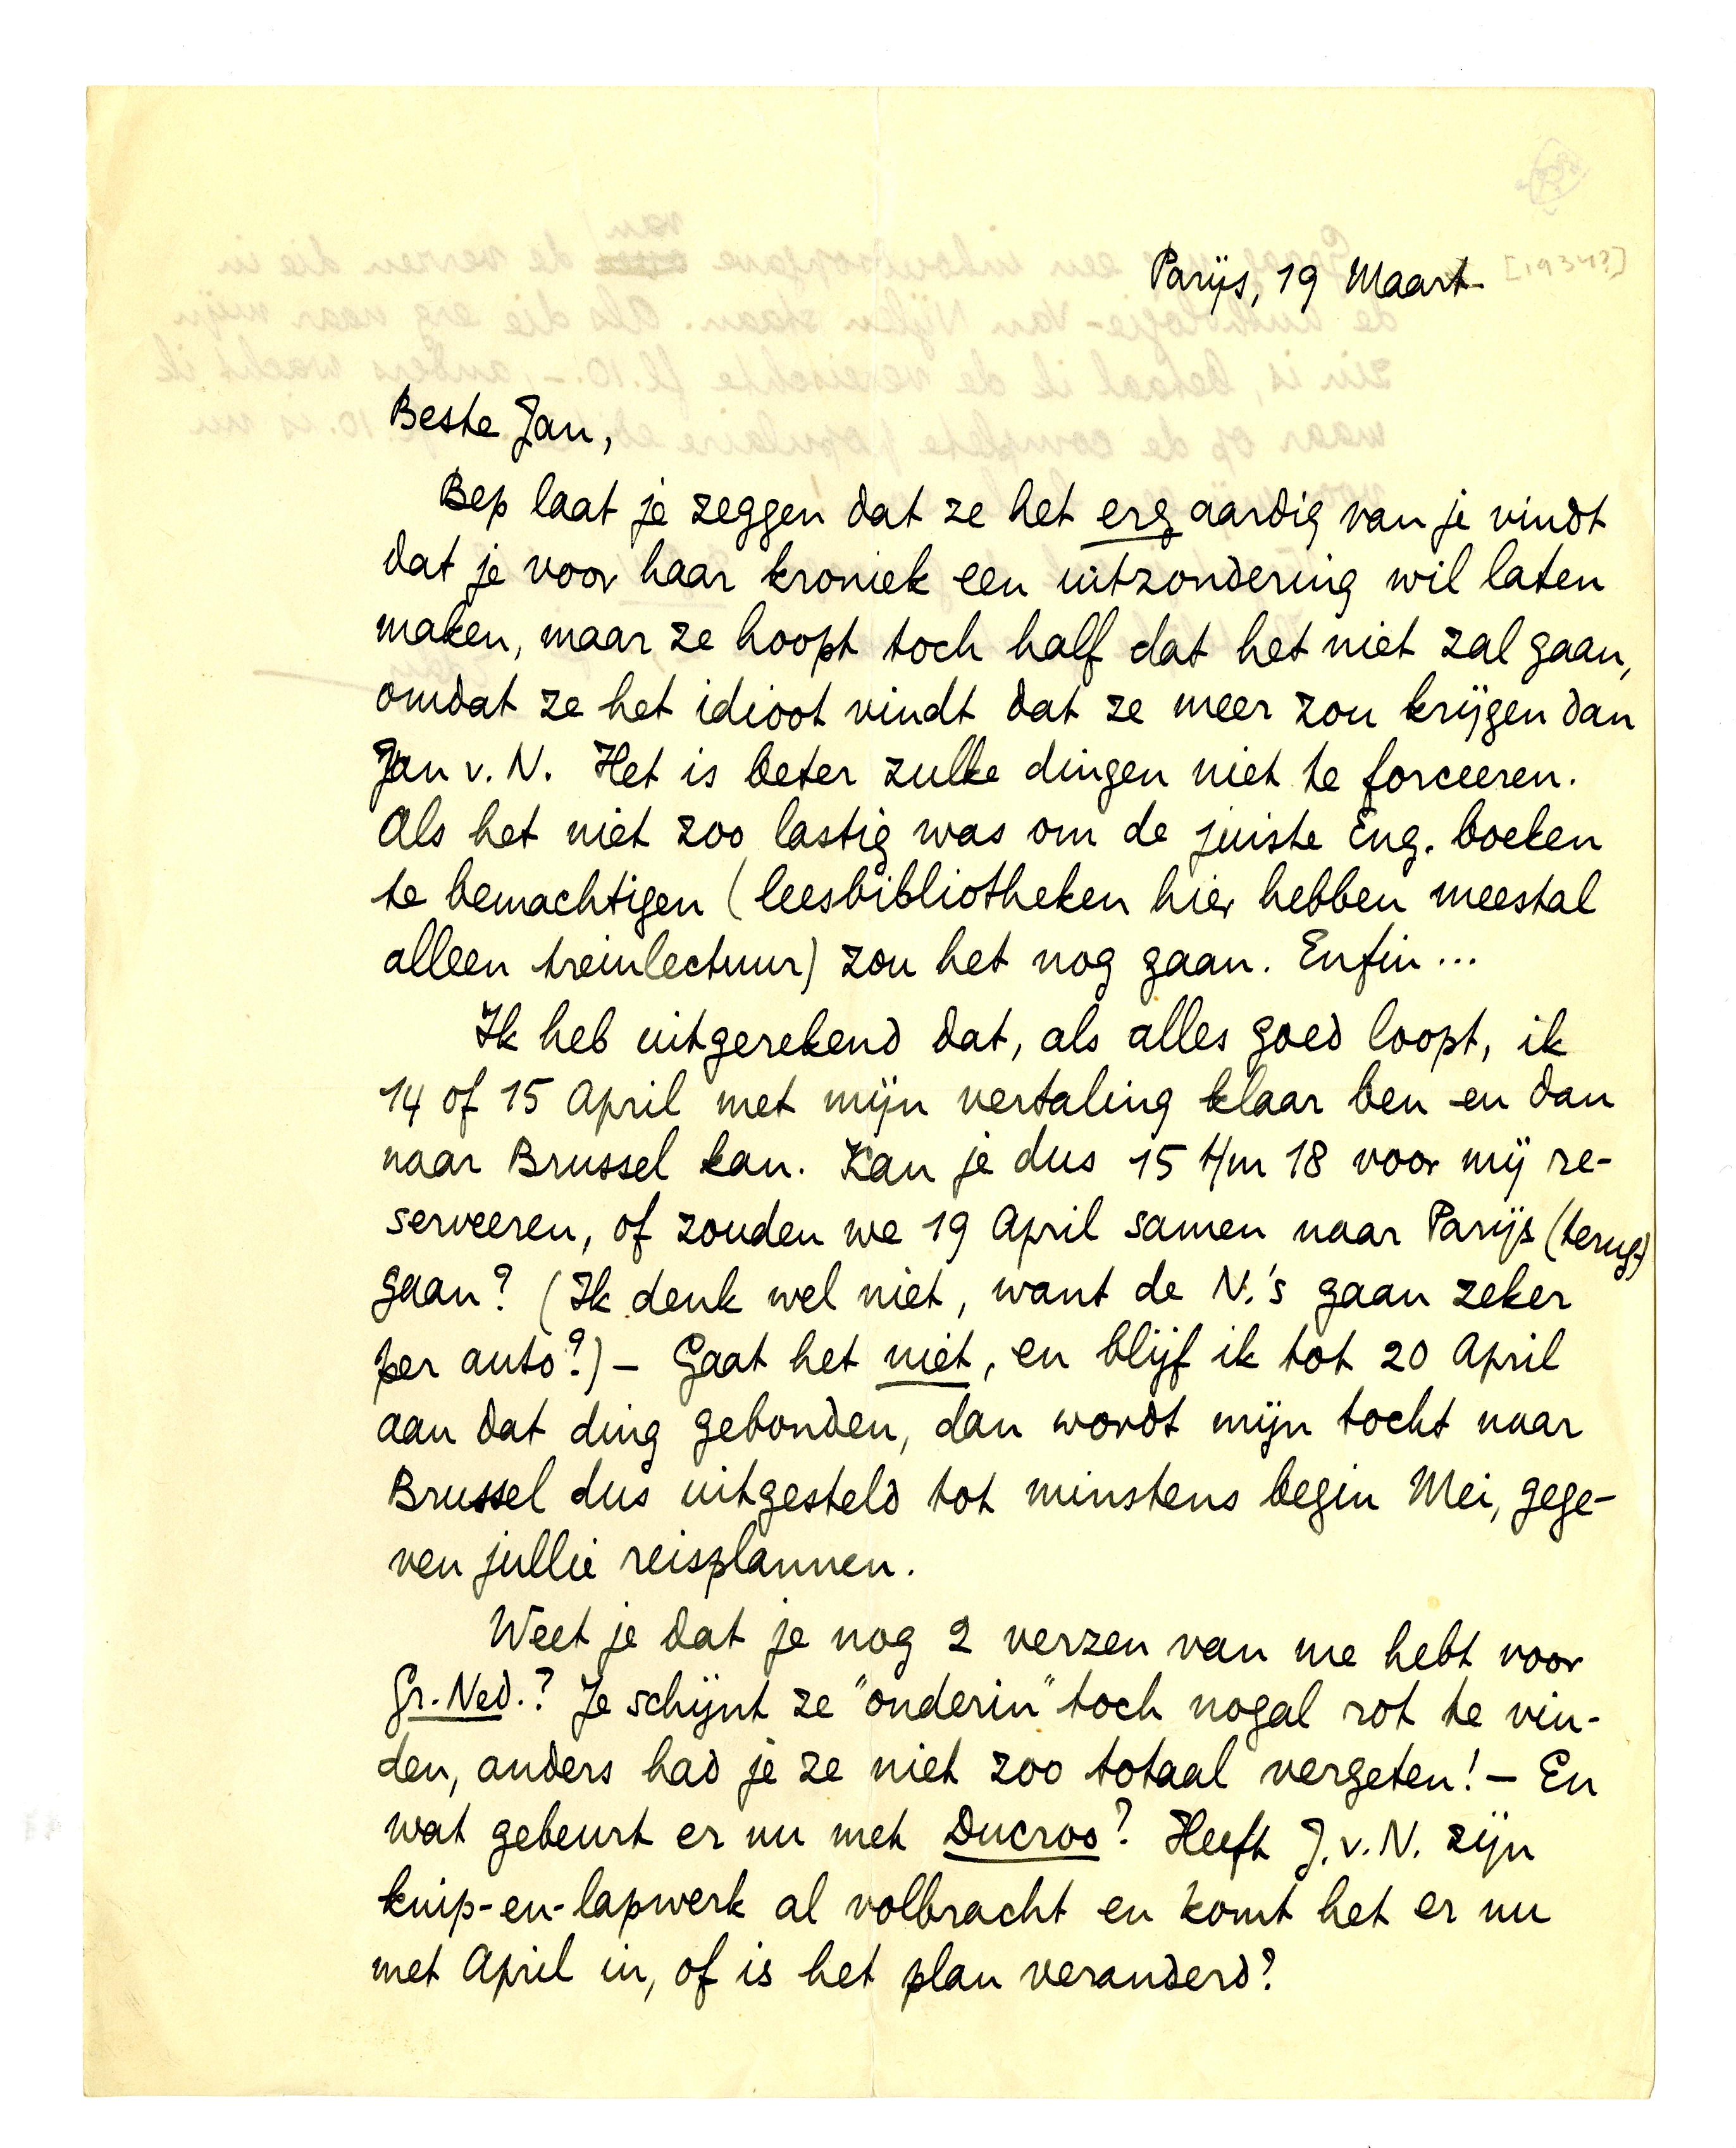 Parijs, 19 Maart. [1934?]
Beste Jan,
Bep laat je zeggen dat ze het erg aardig van je vindt
dat je voor haar kroniek een uitzondering wil laten
maken, maar ze hoopt toch half dat het niet zal gaan,
omdat ze het idioot vindt dat ze meer zou krijgen dan
Jan v. N. Het is beter zulke dingen niet te forceeren.
Als het niet zoo lastig was om de juiste Eng. boeken
te bemachtigen (leesbibliotheken hier hebben meestal
alleen treinlectuur) zou het nog gaan. Enfin ...
Ik heb uitgerekend dat, als alles goed loopt, ik
14 of 15 April met mijn vertaling klaar ben en dan
naar Brussel kan. Kan je dus 15 t/m 18 voor mij re-
serveeren, of zouden we 19 April samen naar Parijs (terug)
gaan? (Ik denk wel niet, want de N.'s gaan zeker
per auto?) – Gaat het niet, en blijf ik tot 20 April
aan dat ding gebonden, dan wordt mijn tocht naar
Brussel dus uitgesteld tot minstens begin Mei, gege-
ven jullie reisplannen.
Weet je dat je nog 2 verzen van me hebt voor
Gr. Ned.? Je schijnt ze "onderin" toch nogal rot te vin-
den, anders had je ze niet zoo totaal vergeten! – En
wat gebeurt er nu met Ducroo? Heeft J. v. N. zijn
knip-en-lapwerk al volbracht en komt het er nu
met April in, of is het plan veranderd?